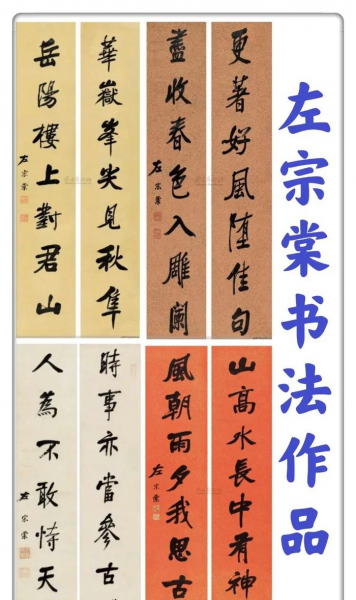 左宗棠书法作品
更著好風堕佳句
盡收春色入雕闌
左宗棠
華嶽峯尖見秋隼
岳陽樓上對君山
左宗棠
山高水長中有神
風朝雨夕我思古
左宗棠
時事亦當參古
人為不敢恃天
左宗棠